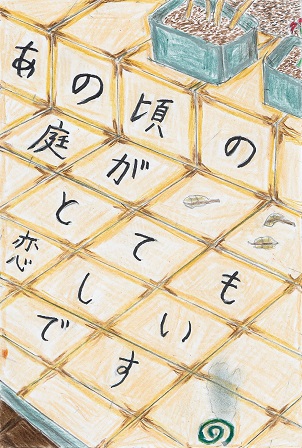 あの頃の
庭が
とても
恋しい
です